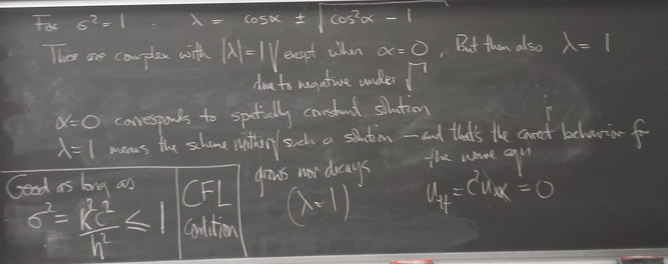 For σ² = 1 . λ = cosα ± √cos²α − 1
These are complex with |λ| = 1 except when α = 0 . But then also λ = 1
due to negative under √
α = 0 corresponds to spatially constant solution
λ = 1 means the scheme neither such a solution — and that's the correct behavior for
grows nor decays the wave eqn
(λ = 1) u_tt = c²u_xx = 0
Good as long as
σ² = k²c²/h² ≤ 1
CFL
Condition